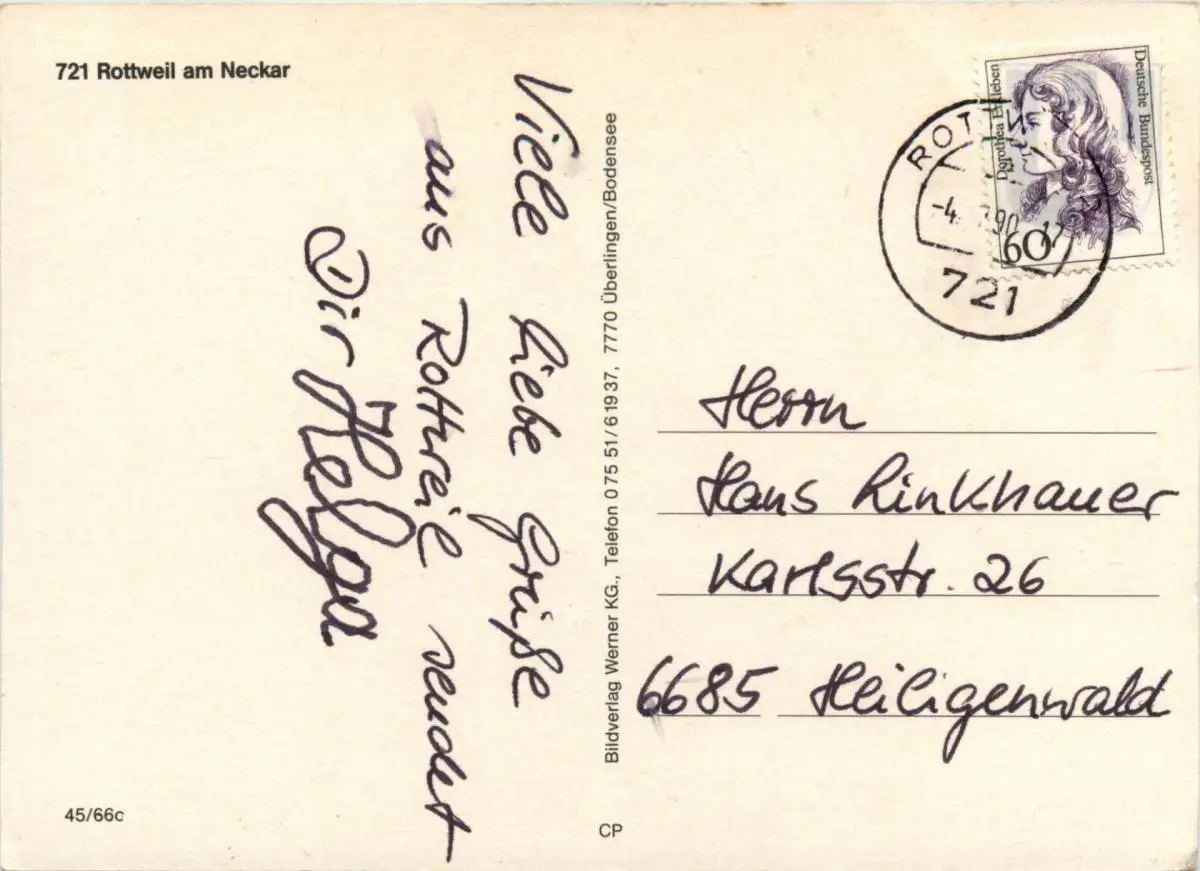 721 Rottweil am Neckar
Viele liebe Grüße
aus Rottweil sendet
Dir Helga
Bildverlag Werner KG., Telefon 075 51/6 19 37, 7770 Überlingen/Bodensee
Deutsche Bundespost
Dorothea Erxleben
60
721
Herrn
Hans Linkhauer
Karlsstr. 26
6685 Heiligenwald
45/66c
CP